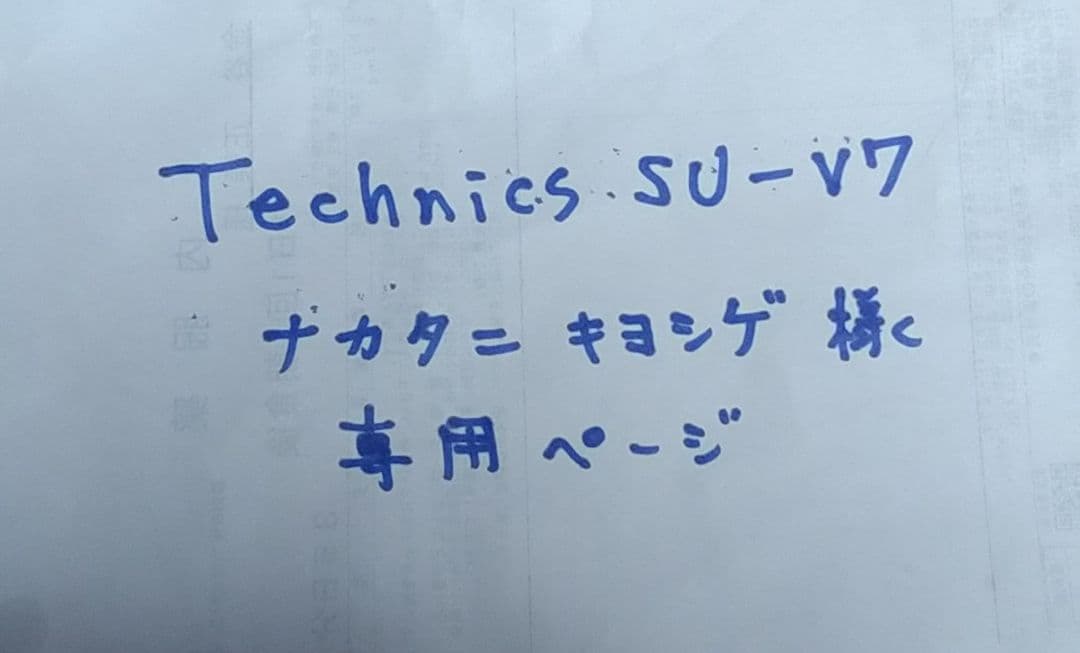 Technics. SU-V7
ナカタニ キヨシゲ 様く
専用ページ